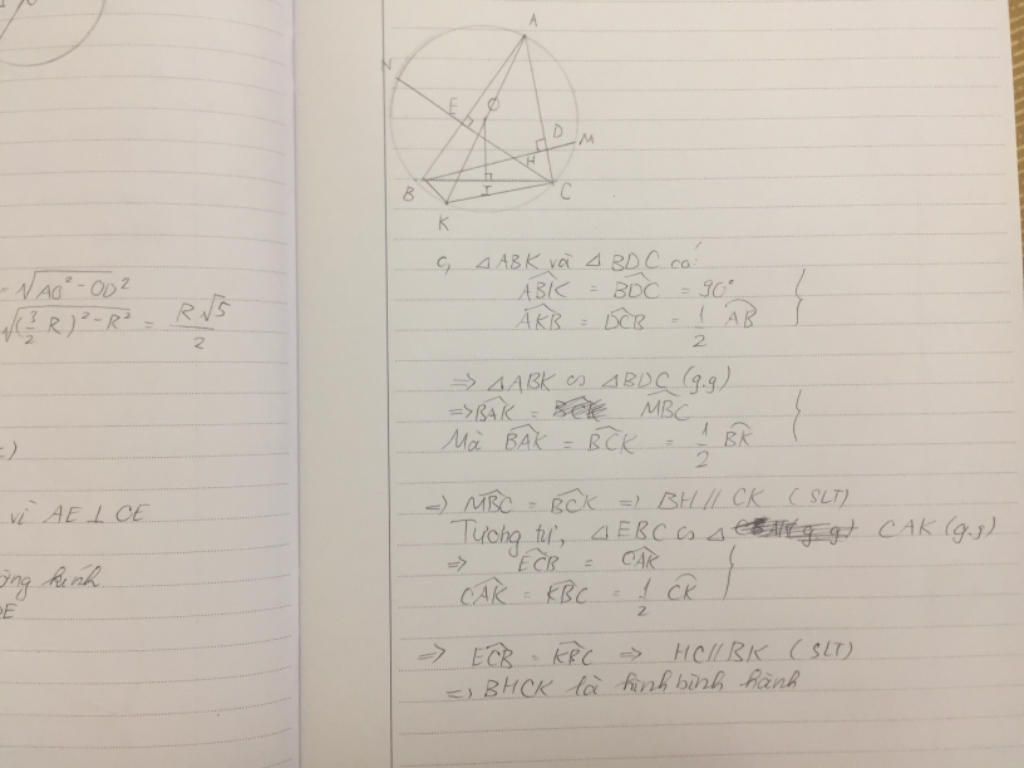 = √AO² - OD²
√(3/2 R)² - R² = R√5/2
vì AE ⊥ CE
kính
A
N
E
O
D
M
H
B
I
C
K
c, △ABK và △BDC có:
ABK = BDC = 90°
AKB = DCB = 1/2 AB
=> △ABK ∽ △BDC (g.g)
=> BAK = MBC
Mà BAK = BCK = 1/2 BK
=> MBC = BCK => BH // CK (SLT)
Tương tự, △EBC ∽ △ CAK (g.g)
=> ECB = CAK
CAK = KBC = 1/2 CK
=> ECB = KBC => HC // BK (SLT)
=> BHCK là hình bình hành